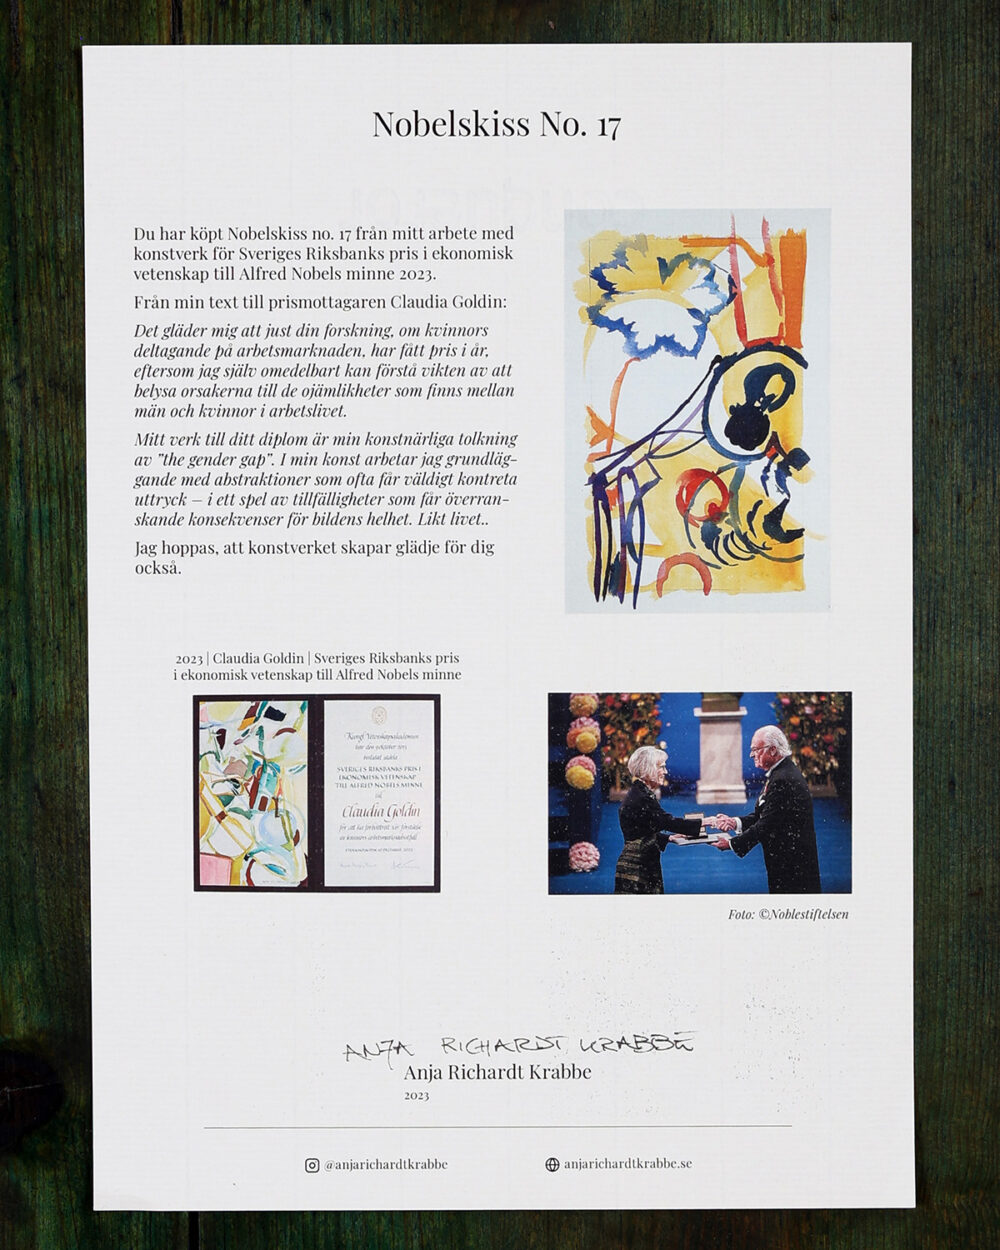 Nobelskiss No. 17
Du har köpt Nobelskiss no. 17 från mitt arbete med
konstverk för Sveriges Riksbanks pris i ekonomisk
vetenskap till Alfred Nobels minne 2023.
Från min text till prismottagaren Claudia Goldin:
Det gläder mig att just din forskning, om kvinnors
deltagande på arbetsmarknaden, har fått pris i år,
eftersom jag själv omedelbart kan förstå vikten av att
belysa orsakerna till de ojämlikheter som finns mellan
män och kvinnor i arbetslivet.
Mitt verk till ditt diplom är min konstnärliga tolkning
av ”the gender gap”. I min konst arbetar jag grundläg-
gande med abstraktioner som ofta får väldigt kontreta
uttryck – i ett spel av tillfälligheter som får överran-
skande konsekvenser för bildens helhet. Likt livet..
Jag hoppas, att konstverket skapar glädje för dig
också.
2023 | Claudia Goldin | Sveriges Riksbanks pris
i ekonomisk vetenskap till Alfred Nobels minne
Kungl. Vetenskapsakademien
har den
beslutat utdela
SVERIGES RIKSBANKS PRIS I
EKONOMISK VETENSKAP
TILL ALFRED NOBELS MINNE
till
Claudia Goldin
för att ha förbättrat vår förståelse
av kvinnors arbetsmarknadsutfall
Foto: ©Noblestiftelsen
ANJA RICHARDT KRABBE
Anja Richardt Krabbe
2023
@anjarichardtkrabbe
anjarichardtkrabbe.se